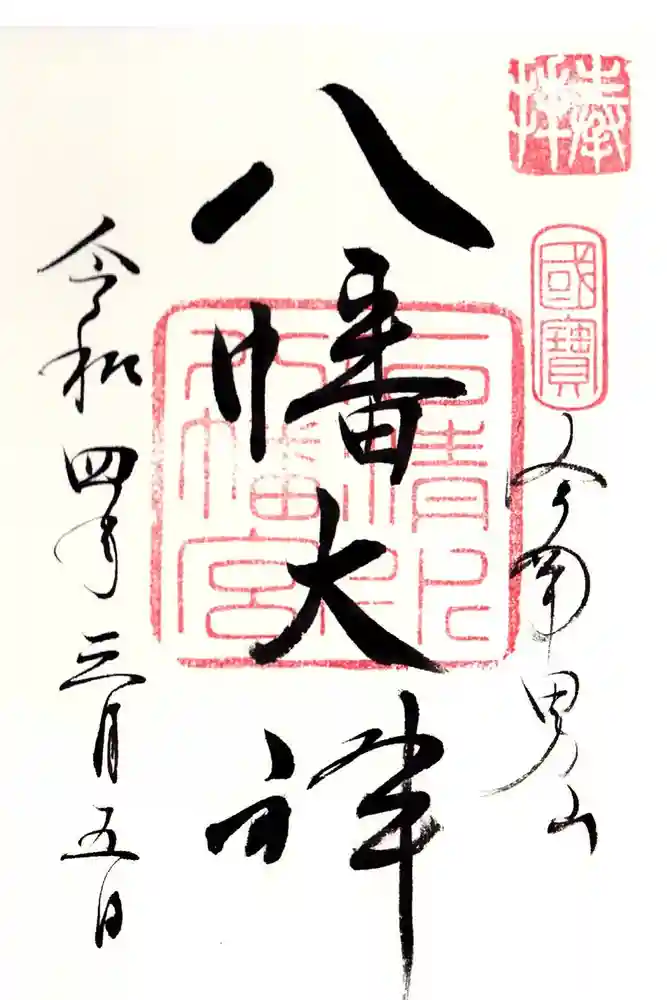 奉拝
國寶
京南男山
八幡大神
石清水
八幡宮
令和四年三月五日